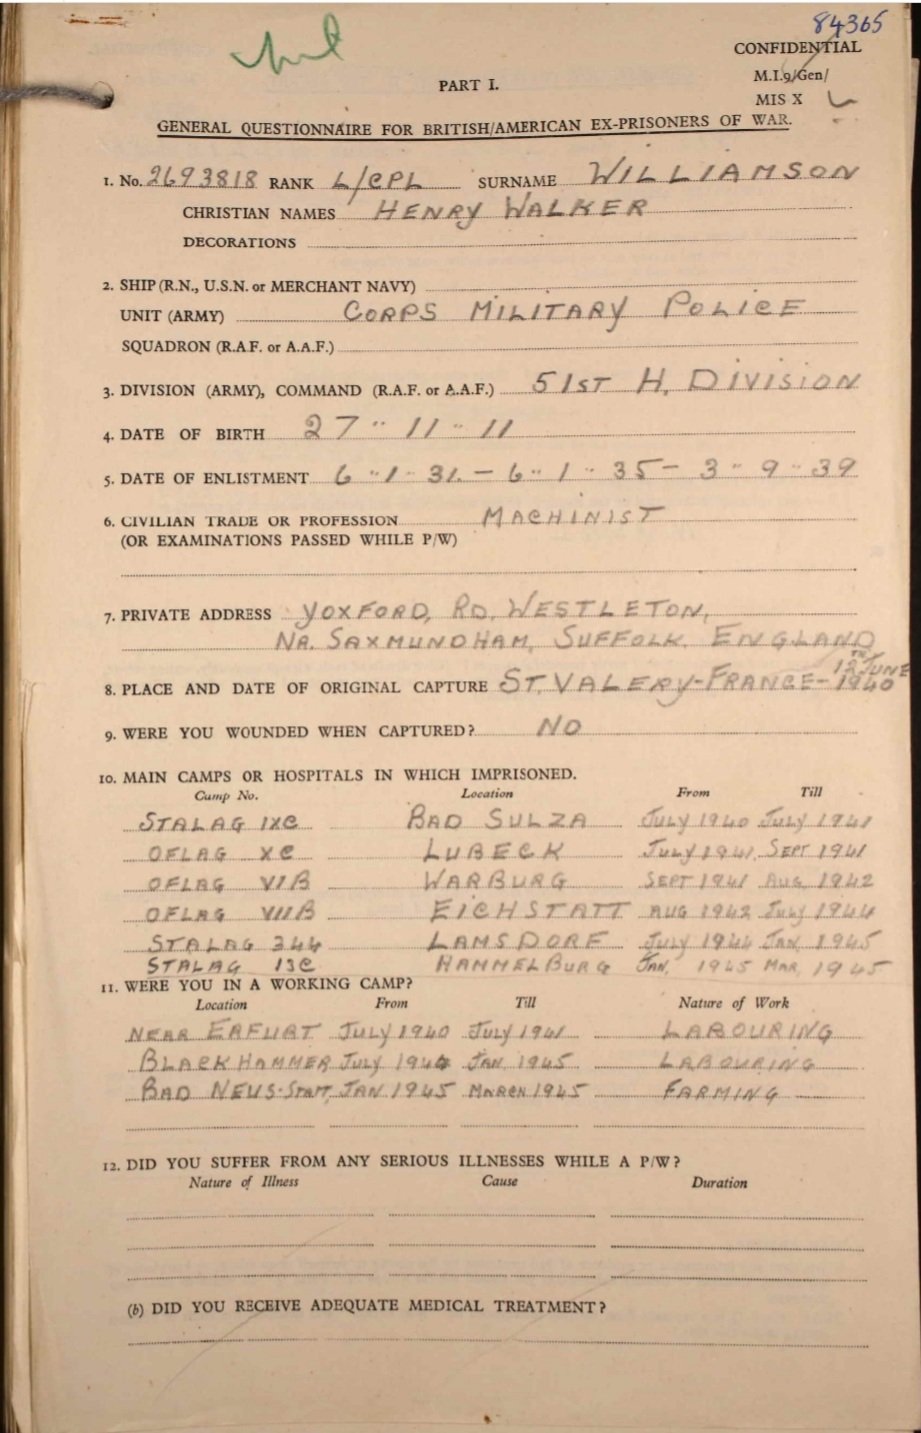 84365
CONFIDENTIAL
M.I.9/Gen/
MIS X
PART I.
GENERAL QUESTIONNAIRE FOR BRITISH/AMERICAN EX-PRISONERS OF WAR.
1. No. 2693818 RANK L/CPL SURNAME WILLIAMSON
CHRISTIAN NAMES HENRY WALKER
DECORATIONS
2. SHIP (R.N., U.S.N. or MERCHANT NAVY)
UNIT (ARMY) CORPS MILITARY POLICE
SQUADRON (R.A.F. or A.A.F.)
3. DIVISION (ARMY), COMMAND (R.A.F. or A.A.F.) 51ST H. DIVISION
4. DATE OF BIRTH 27 " 11 " 11
5. DATE OF ENLISTMENT 6 " 1 " 31 - 6 " 1 " 35 - 3 " 9 " 39
6. CIVILIAN TRADE OR PROFESSION MACHINIST
(OR EXAMINATIONS PASSED WHILE P/W)
7. PRIVATE ADDRESS YOXFORD, RD, WESTLETON,
NR. SAXMUNDHAM, SUFFOLK. ENGLAND
8. PLACE AND DATE OF ORIGINAL CAPTURE ST. VALERY-FRANCE- 12TH JUNE 1940
9. WERE YOU WOUNDED WHEN CAPTURED? NO
10. MAIN CAMPS OR HOSPITALS IN WHICH IMPRISONED.
Camp No. Location From Till
STALAG IXC BAD SULZA JULY 1940 JULY 1941
OFLAG XC LUBECK JULY 1941 SEPT 1941
OFLAG VIB WARBURG SEPT 1941 AUG 1942
OFLAG VIIB EICHSTATT AUG 1942 JULY 1944
STALAG 344 LAMSDORF JULY 1944 JAN 1945
STALAG 13C HAMMELBURG JAN, 1945 MAR, 1945
11. WERE YOU IN A WORKING CAMP?
Location From Till Nature of Work
NEAR ERFURT JULY 1940 JULY 1941 LABOURING
BLACKHAMMER JULY 1944 JAN 1945 LABOURING
BAD NEUS-STATT, JAN 1945 MARCH 1945 FARMING
12. DID YOU SUFFER FROM ANY SERIOUS ILLNESSES WHILE A P/W?
Nature of Illness Cause Duration
(b) DID YOU RECEIVE ADEQUATE MEDICAL TREATMENT?